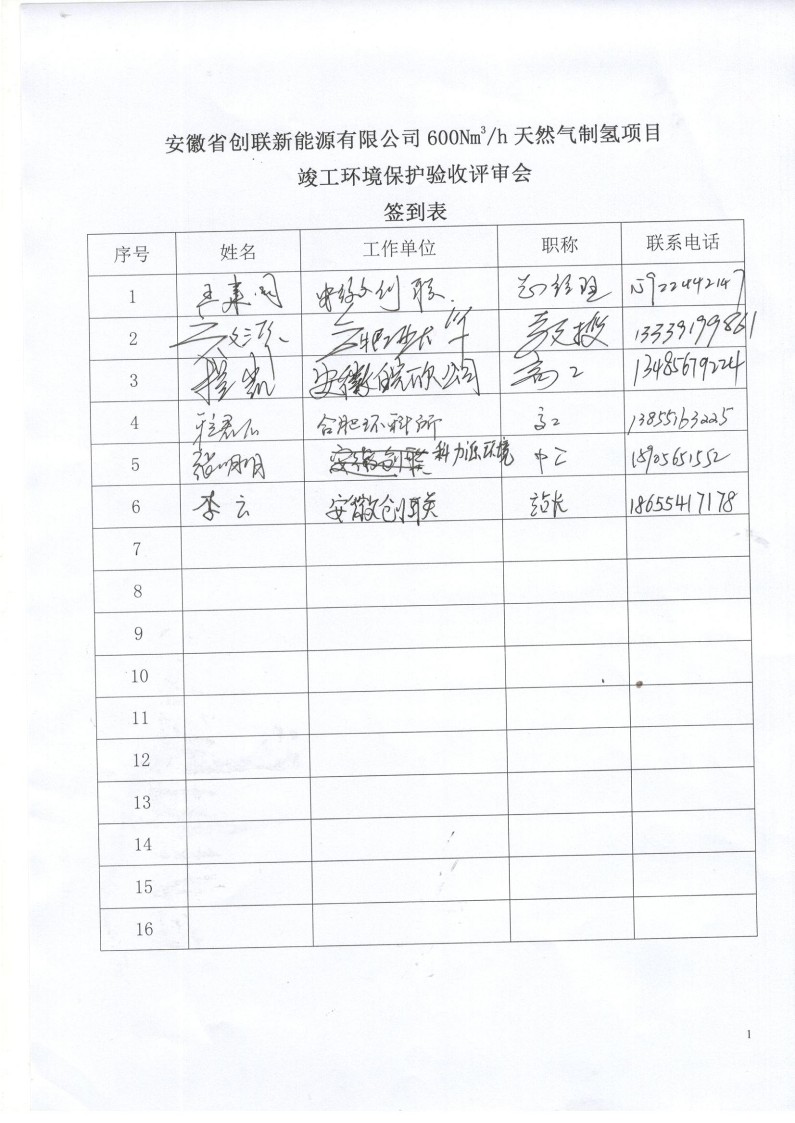 安徽省创联新能源有限公司 600Nm³/h 天然气制氢项目
竣工环境保护验收评审会
签到表
序号 姓名 工作单位 职称 联系电话
1 总经理
2 教授 13339199861
3 程凯 安徽皖欣公司 高工 13485679224
4 合肥环科所 高工 13855163225
5 张明明 安徽创联 科力派环境 中工 18905651552
6 李云 安徽创联 站长 18655417178
7
8
9
10
11
12
13
14
15
16
1